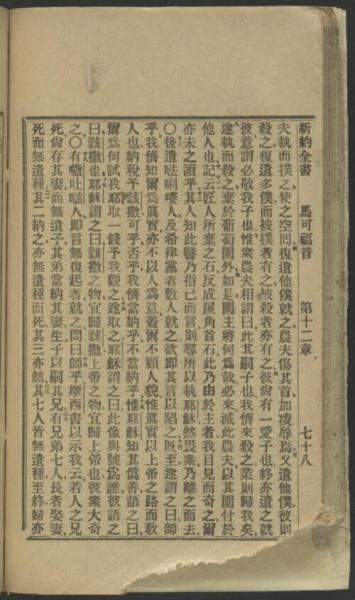 新約全書　馬可福音　第十二章　七十八
夫執而撲之使之空囘復遣他僕就之農夫傷其首加凌辱焉又遣他僕彼則
殺之復遣多僕而被撲者有之被殺者亦有之彼尙有一愛子也終亦遣之就
彼意謂必敬我子也惟衆農夫相謂曰此其嗣子也我儕來殺之業則歸我矣
遂執而殺之棄於葡萄園外如是園主將何爲哉必來滅此農夫以其園付於
他人也記云匠人所棄之石反成屋角首石此乃由於主者我目見而奇之爾
亦未之讀乎其人知此譬乃指己而言則尋所以執耶穌然畏衆乃離之而去
〇後遣𠵽唎㘔人及希律黨者數人就之欲卽其言以陷之旣至遂謂之曰師
乎我儕知爾爲眞實亦不以人爲意蓋爾不顧人貌惟眞實以上帝之路而敎
人也納稅予該撒可乎否乎我儕當納乎不當納乎惟耶穌知其爲善語之曰
爾爲何試我耶取一錢予我觀之遂取之耶穌謂之曰此像與號爲誰彼語之
曰該撒也耶穌謂之曰該撒之物宜歸該撒上帝之物宜歸上帝也彼衆大奇
之〇有𠵽吐㗭人卽言無復起者就之問曰師乎摩西書以示我云若人之兄
死尙存其妻而無遺子其弟當納其妻生子以嗣其兄有兄弟七人長者娶妻
死而無遺種其二納之亦無遺種而死其三亦然其七人皆無遺種至終婦亦